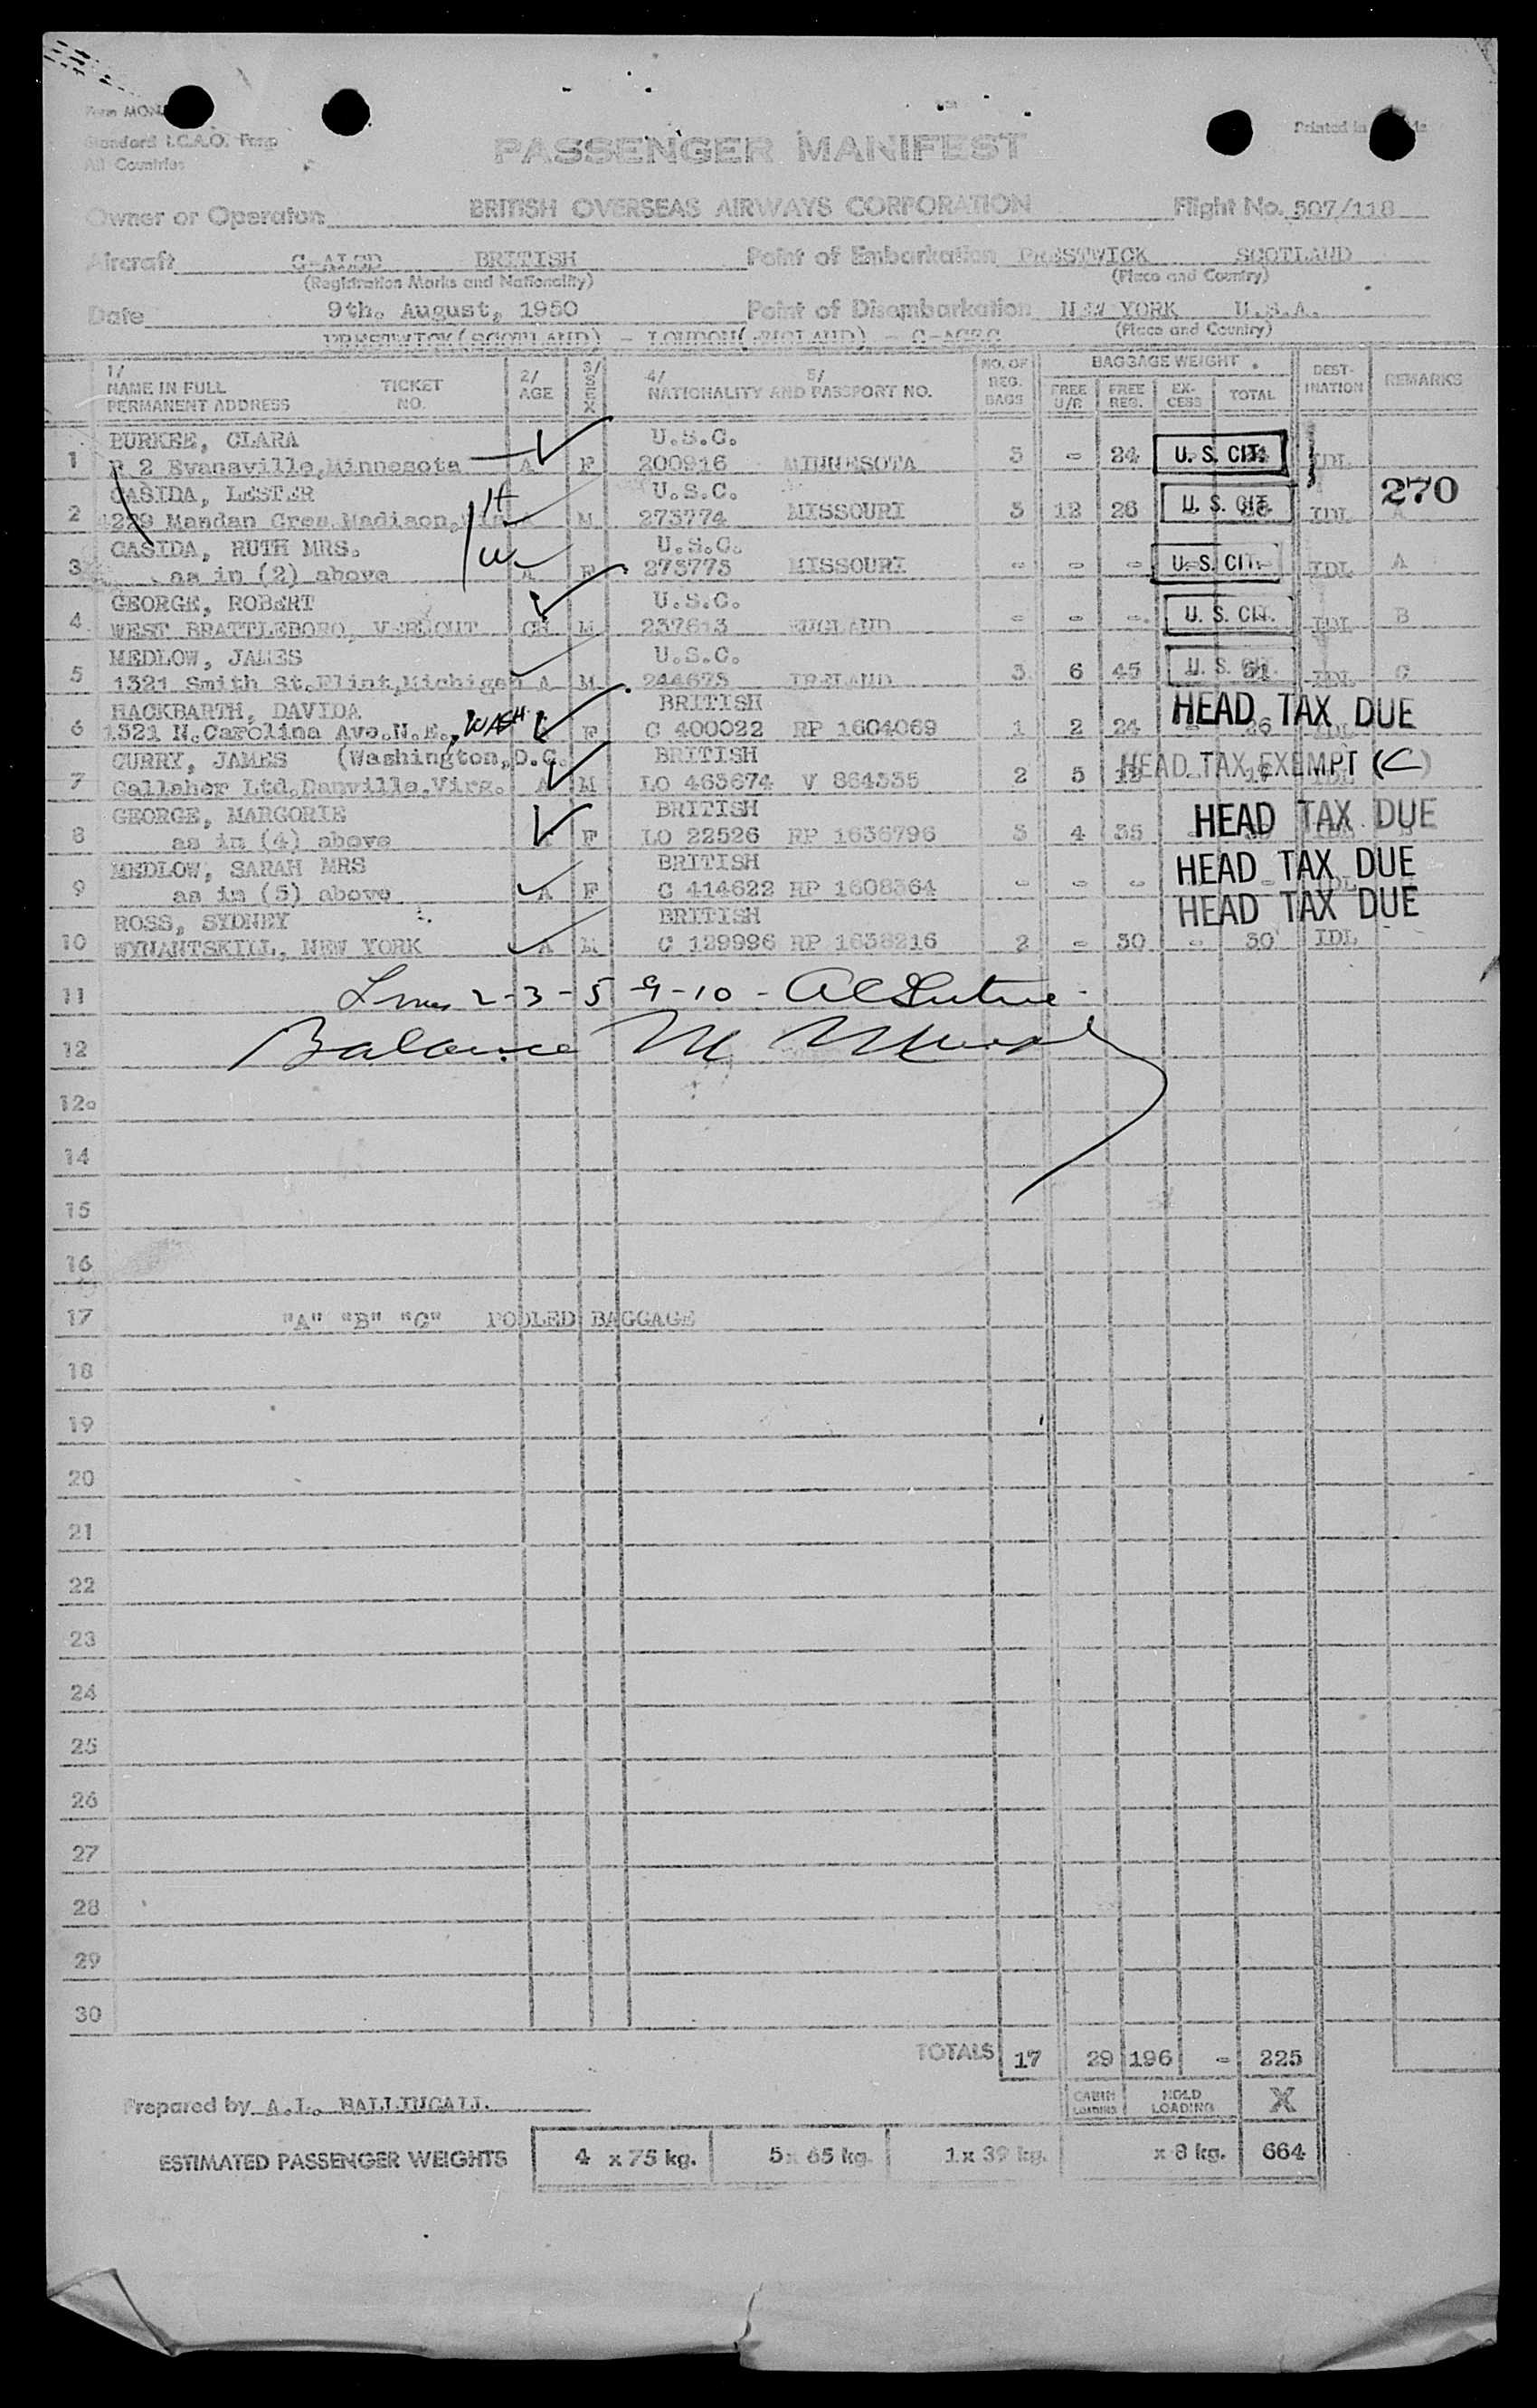 Form
Standard I.C.A.O. Form
All Countries
Printed in
PASSENGER MANIFEST
Owner or Operator BRITISH OVERSEAS AIRWAYS CORPORATION Flight No. 507/118
Aircraft BRITISH Point of Embarkation PRESTWICK SCOTLAND
(Registration Marks and Nationality) (Place and Country)
Date 9th. August, 1950 Point of Disembarkation NEW YORK U.S.A.
(Place and Country)
PRESTWICK(SCOTLAND) - LONDON(ENGLAND) -
1/ NAME IN FULL PERMANENT ADDRESS TICKET NO. 2/ AGE 3/ SEX 4/ NATIONALITY AND 5/ PASSPORT NO. NO. OF REG. BAGS BAGGAGE WEIGHT FREE U/R FREE REG. EX-CESS TOTAL DEST-INATION REMARKS
BURKEE, CLARA U.S.C.
1 R 2 Evansville, Minnesota A F 200916 MINNESOTA 3 - 24 U. S. CIT. IDL
270
CASIDA, LESTER U.S.C.
2 4229 Mandan Cres. Madison, H M 273774 MISSOURI 3 12 26 U. S. CIT. IDL A
CASIDA, RUTH MRS. U.S.C.
3 as in (2) above W A F 273775 MISSOURI - - - U. S. CIT. IDL A
GEORGE, ROBERT U.S.C.
4 WEST BRATTLEBORO, VERMONT CH M ENGLAND - - - U. S. CIT. IDL B
MEDLOW, JAMES U.S.C.
5 1321 Smith St. Flint, Michigan A M 244675 IRELAND 3 6 45 U. S. CIT. 51 IDL C
HACKBARTH, DAVIDA BRITISH HEAD TAX DUE
6 1521 N. Carolina Ave. N.E., WASH F C 400022 RP 1604069 1 2 24 - 26 IDL
CURRY, JAMES (Washington, D.C. BRITISH HEAD TAX EXEMPT (C)
7 Gallaher Ltd. Danville, Virg. A M LO 463674 V 864335 2 5 12 - 17 IDL
GEORGE, MARGORIE BRITISH HEAD TAX DUE
8 as in (4) above F LO 22526 RP 1636796 3 4 35 -
MEDLOW, SARAH MRS BRITISH HEAD TAX DUE
9 as in (5) above A F C 414622 RP 1608364 - - - - IDL
ROSS, SYDNEY BRITISH HEAD TAX DUE
10 WYNANTSKILL, NEW YORK A M C 129996 RP 1638216 2 - 30 - 30 IDL
11 Lines 2-3-5-9-10 -
12 Balance M
12a
14
15
16
17 "A" "B" "C" POOLED BAGGAGE
18
19
20
21
22
23
24
25
26
27
28
29
30
TOTALS 17 29 196 - 225
CABIN LOADING HOLD LOADING X
Prepared by A.L. BALLINGALL.
ESTIMATED PASSENGER WEIGHTS 4 x 75 kg. 5 x 65 kg. 1 x 39 kg. x 8 kg. 664